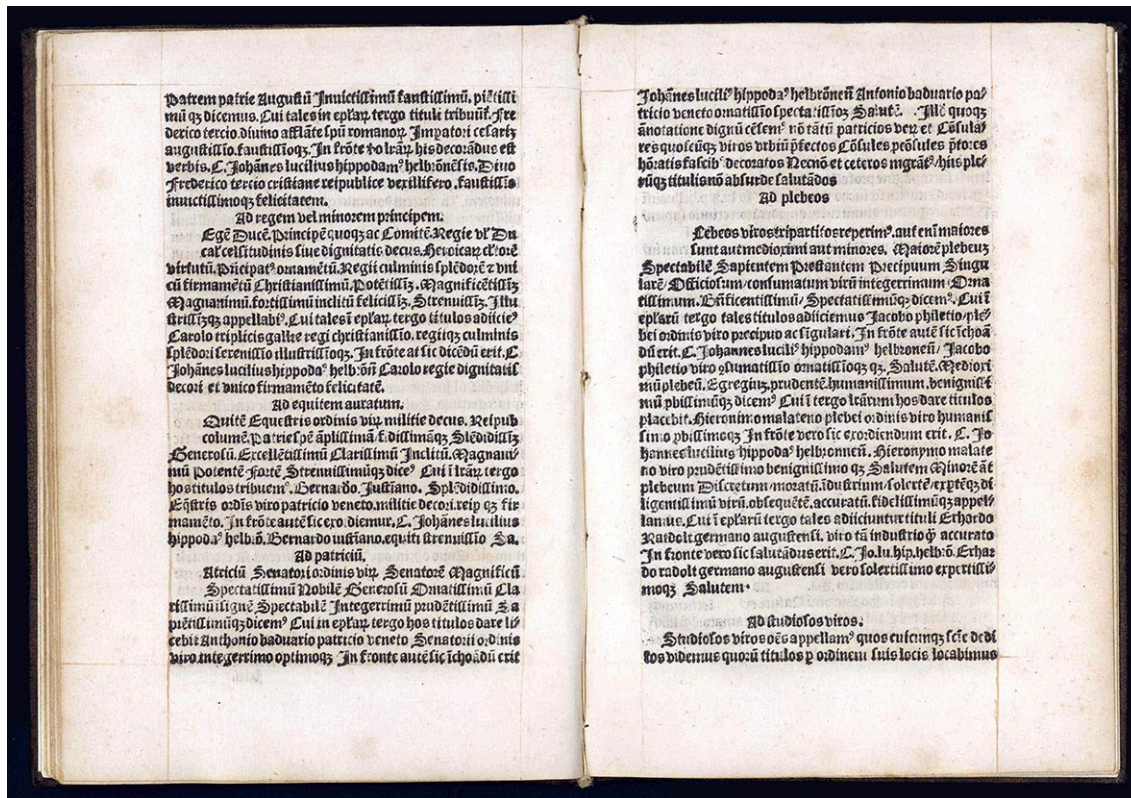 Patrem patrie Augustū Inuictissimū faustissimū. piētissi
mū qꝫ dicemus. Cui tales in epl̄aꝝ tergo tituli tribuūt. Fre
derico tercio diuino afflāte spū romanoꝝ Impatori cesariꝫ
augustissīo. faustissīoqꝫ. In frōte ꝟo lr̄aꝝ his decorādus est
verbis. C. Johānes lucilius hippodamꝰ helbrōnēsis. Diuo
Frederico tercio cristiane reipublice vexillifero. faustissīs
inuictissimoqꝫ felicitatem.
Ad regem vel minorem principem.
Egē Ducē. Principē quoqꝫ ac Comitē. Regie vl̄ Du
cal̄ celsitudinis siue dignitatis decus. Heroicaꝝ
virtutū. Pricipatꝰ ornamētū. Regii culminis splēdorē ⁊ vni
cū firmamētū Christianissimū. Potētissīꝫ. Magnificētissīꝫ
Magnanimū. fortissimū inclitū felicissīꝫ. Strenuissīꝫ. Illu
strissīꝫqꝫ appellabiꝰ. Cui tales ī epl̄aꝝ tergo titulos adiiciēꝰ
Carolo triplicis gallie regi christianissīo. regiiqꝫ culminis
splēdori serenissīo illustrissīoqꝫ. In frōte at sic dicēdū erit. C.
Johānes lucilius hippodaꝰ helbrōn̄ Carolo regie dignitatis
decori et vnico firmamēto felicitatē.
Ad equitem auratum.
Quitē Equestris ordinis viꝝ militie decus. Reipub
columē. Patrie spē āplissimā fidissimāqꝫ Slēdidissīꝫ
Generosū. Excellētissimū Clarissimū Inclitū. Magnani
mū Potentē Fortē Strennuissimūqꝫ diceꝰ Cui ī lr̄aꝝ tergo
hos titulos tribuemꝰ. Bernardo. Justīano. Splēdidissimo.
Eqstris ordīs viro patricio veneto. militie decori. reip qꝫ fir
mamēto. In frōte autē sic exordiemur. C. Johānes lucilius
hippodaꝰ helbrō. Bernardo iustīano. equiti strenuissīo Sa.
Ad patriciū.
Atriciū Senatorii ordinis viꝝ Senatorē Magnificū
Spectatissimū Nobilē Generosū Ornatissimū Cla
rissimū isignē Spectabilē Integerrimū prudētissimū Sa
piētissimūqꝫ dicemꝰ Cui in epl̄aꝝ tergo hos titulos dare li
cebit Anthonio baduario patricio veneto Senatorii ordinis
viro integerrimo optimoqꝫ In fronte autē sic īchoādū erit
Johānes luciliꝰ hippodaꝰ helbrōnēn̄ Antonio baduario pa/
tricio veneto ornatissīo spectatissīoqꝫ Salutē. Illd̄ quoqꝫ
ānotatione dignū cēsemꝰ nō tātū patricios veꝝ et Cōsula/
res quoscūqꝫ viros vrbiū p̄fectos Cōsules pcōsules p̄tores
hōratis fascibꝰ decoratos Necnō et ceteros mgrātꝰ/hiis ple/
rūqꝫ titulis nō absurde salutādos
Ad plebeos
Lebeos viros tripartitos reperimꝰ. aut enī maiores
sunt aut mediorimi aut minores. Maiorē plebeuꝫ
Spectabilē Sapientem Prestantem Precipuum Singu
larē/ Officiosum/ consumatum virū integerrimum/ Orna
tissimum. Bn̄ficentissimū/ Spectatissimūqꝫ dicemꝰ. Cui ī
epl̄arū tergo tales titulos adiiciemus Jacobo philetio/ple/
bei ordinis viro precipuo ac sīgulari. In frōte autē sic ichoā
dū erit. C. Johannes luciliꝰ hippodamꝰ helbronēn̄/ Jacobo
philetio viro ꝯsumatissīo ornatissīoqꝫ. Salutē. Mediori
mū plebeū. Egregiuꝫ. prudentē. humanissimum. benignissī
mū pbissimūqꝫ dicemꝰ Cui ī tergo lr̄arum hos dare titulos
placebit. Hieronimo malateno plebei ordinis viro humanis
simo pbissimoqꝫ In frōte vero sic exordiendum erit. C. Jo
hannes lucilius hippodaꝰ helbronnēn̄. Hieronymo malate
no viro prudētissimo benignissimo qꝫ Salutem Minorē āt
plebeum Discretum/ moratū. īdustrium/ solertē/ exptēqꝫ di
ligentissimū virū. obsequētē. accuratū. fidelissimūqꝫ appel/
lamus. Cui ī epl̄arū tergo tales adiiciuntur tituli Erhordo
Ratdolt germano augustensi. viro tā industrio q̄ꝫ accurato
In fronte vero sic salutādus erit. C. Jo. lu. hip. helbrō. Erhar
do radolt germano augustensi vero solertissimo expertissi
moqꝫ Salutem.
Ad studiosos viros.
Studiosos viros oēs appellamꝰ quos cuicunqꝫ sciē dedi
tos videmus quorū titulos ꝑ ordinem suis locis locabimus